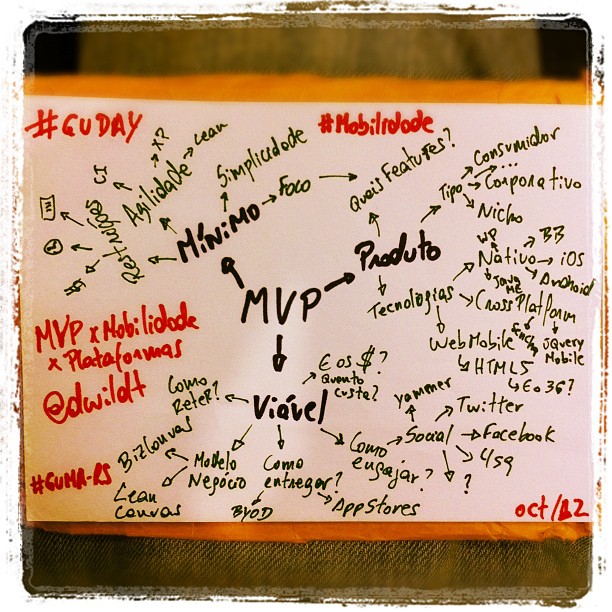 #GUDAY
#Mobilidade
XP
Lean
CI
Agilidade
Restrições
Simplicidade
Foco
MÍNIMO
Quais Features?
Consumidor
...
Tipo
Corporativo
Nicho
Produto
WP
BB
Nativo
iOS
Android
JAVA
ME
Tecnologias
CrossPlatform
JQuery
Mobile
WebMobile
HTML5
E o 3G?
MVP
MVP x Mobilidade
x Plataformas
@dwildt
Viável
E os $?
Quanto
custa?
Como
Reter?
BizCanvas
Modelo
Negócio
Lean
Canvas
Como
entregar?
BYOD
AppStores
Como
engajar?
Social
yammer
Twitter
Facebook
4sq
?
#GUMA-RS
oct/12